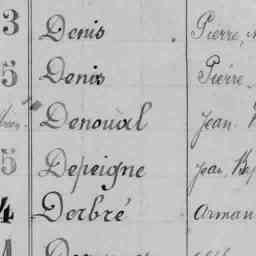 3 Denis Pierre,
5 Denis Pierre
Denoual Jean
5 Depeigne Jean Bap
4 Derbré Arman
4